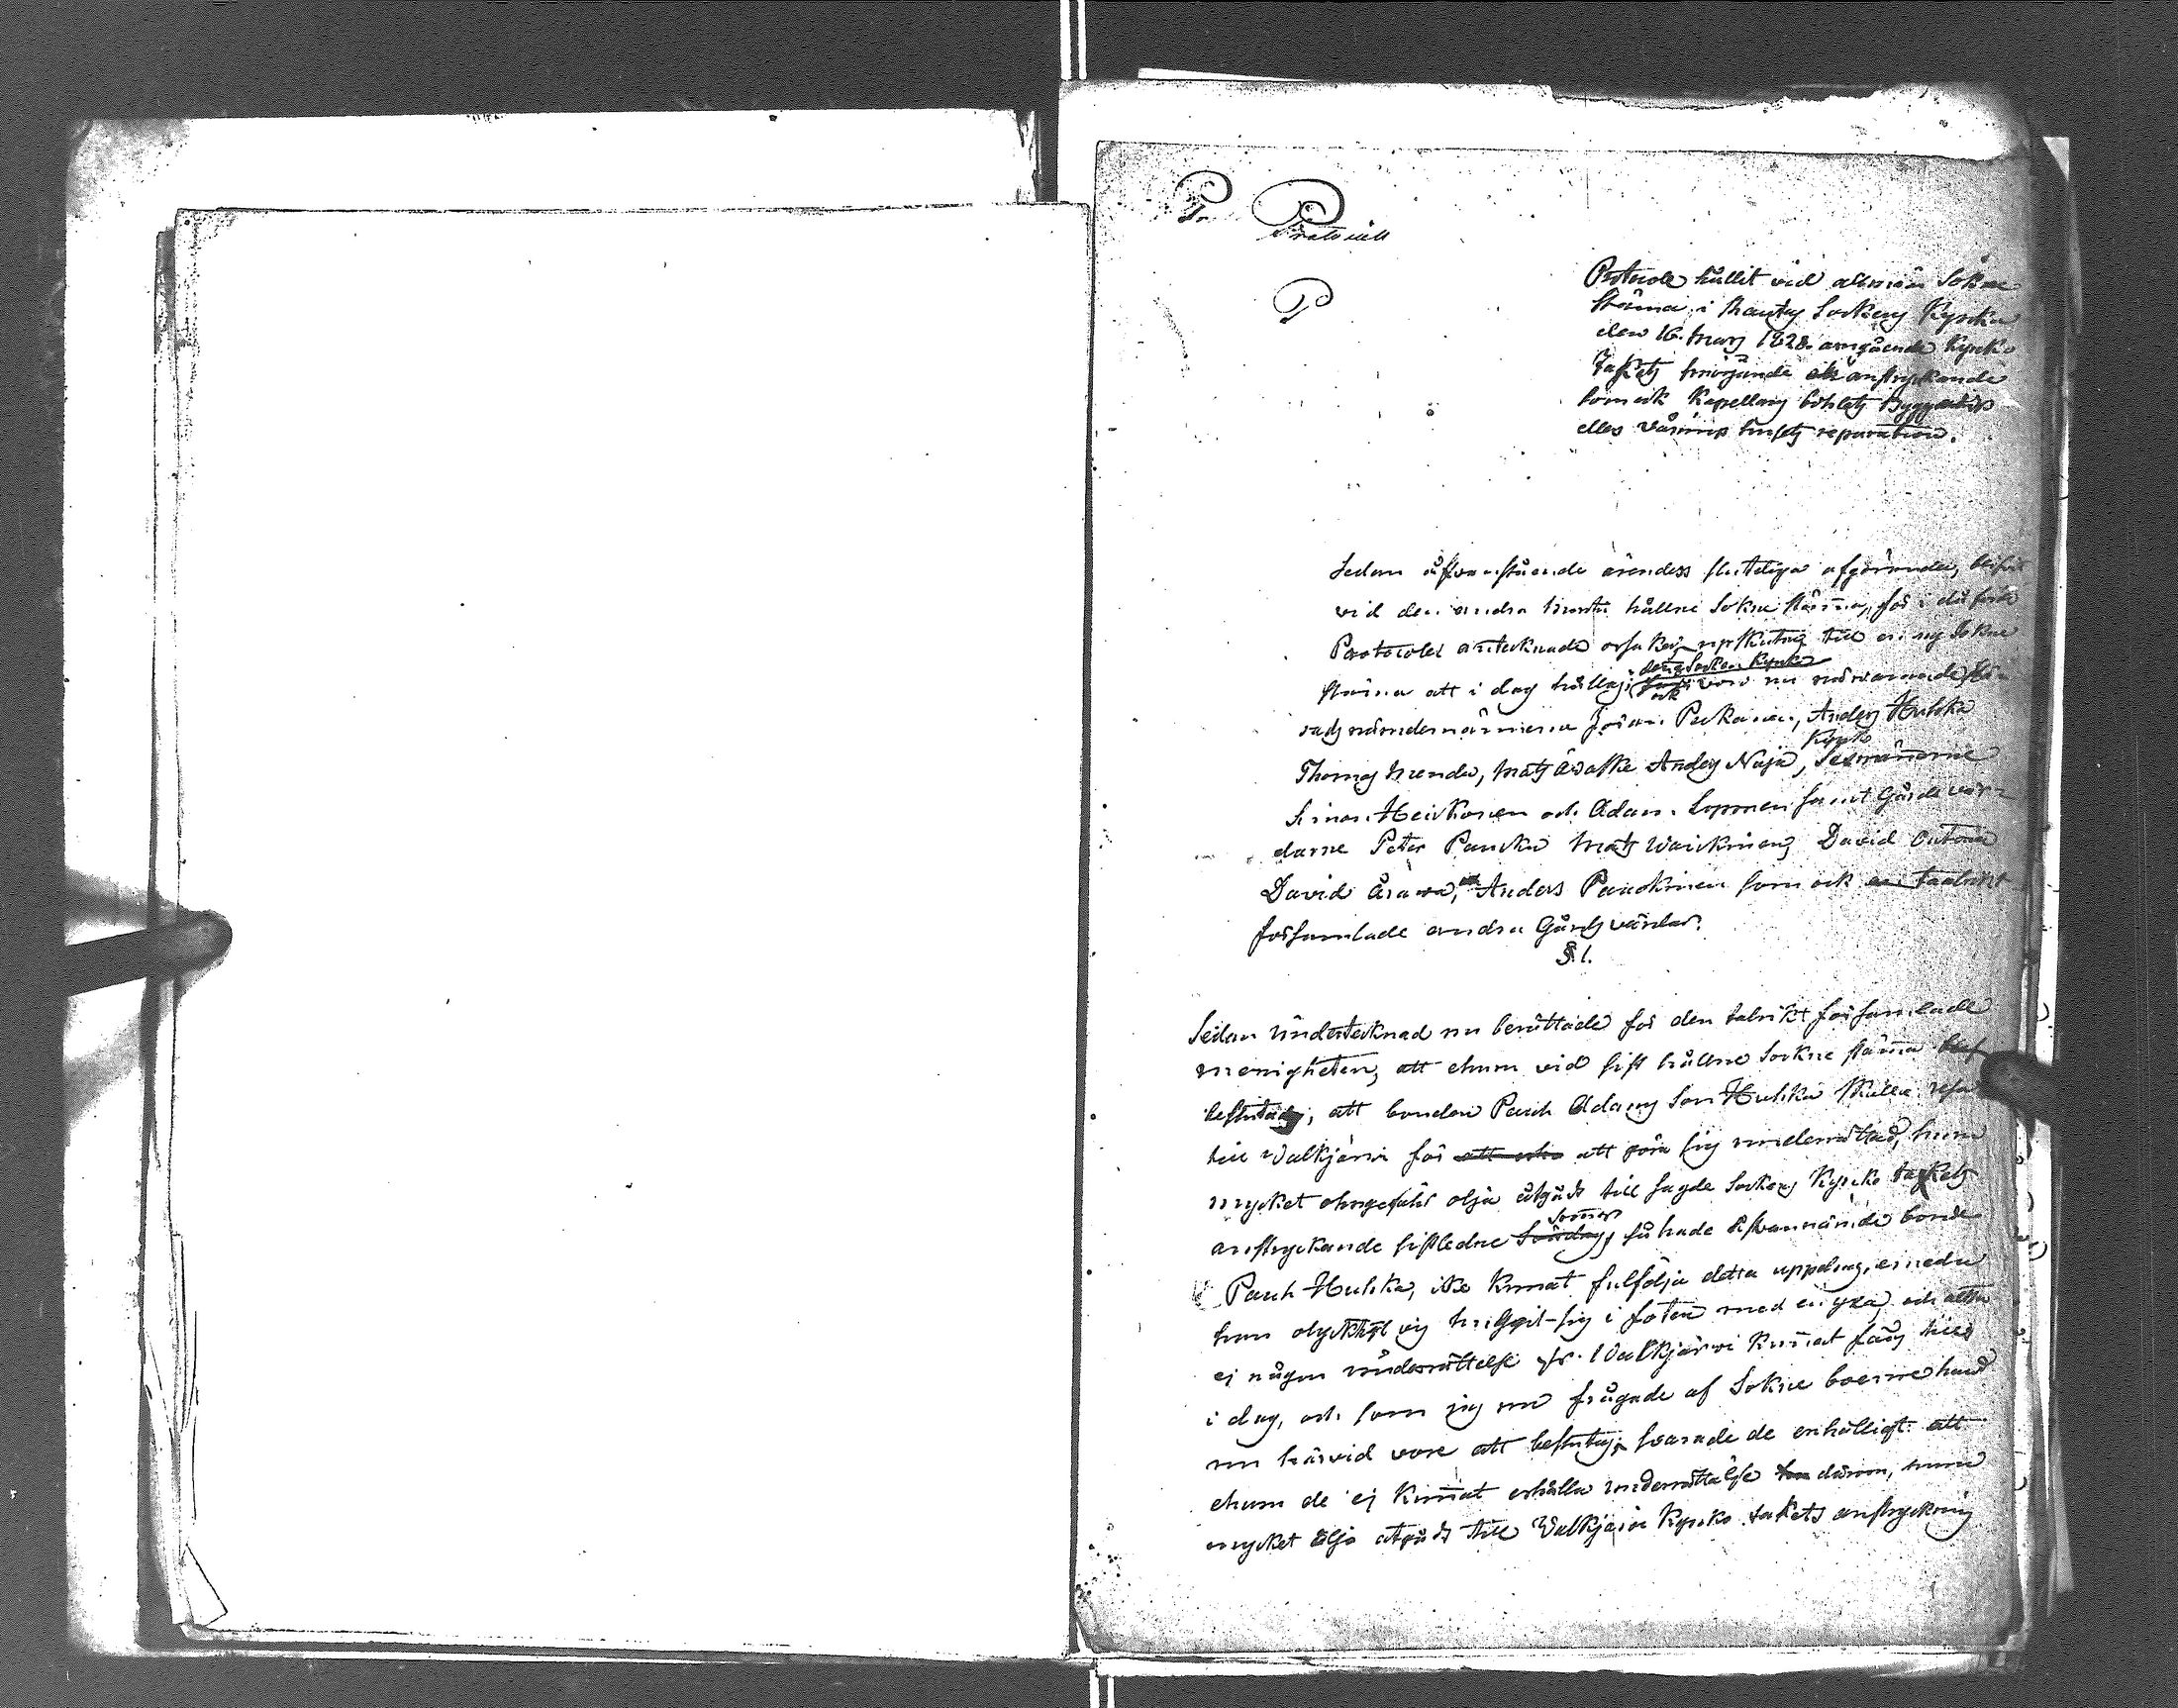 P P
Protocoll
P
Protocoll hållit vid allmän Sokne
stämma i Rautus Sockens Kyrka
den 16. Mars 1828. angående Kyrko
Takets smörjande och anstrykande
som ock Kapellans bohlets Byggnads
eller vånings husets reparation.
Sedan åfvanstående ärendes slutliga afgörande, blifvit
vid den andra hållne Sokne stämma, för i då förda
Protocolet antecknade orsaker uppskutit till en ny Sokne
denna Sockens Kyrka
stämma att i dag hållas i voro nu närvarande Hä-
ock
rads nämdemännerne Johan Puckanen, Anders Huhka
Kyrko
Thomas Mendu, Mats Äväske Anders Naja, Sexmännerne
Simon Heickonen och Adam Loponen samt Gårdsvär-
darne Peter Pancku Mats Waickinen, David Outoma
David Årawa, Anders Pauckinen som ock talrikt
församlade andra Gårdsvärdar.
§ 1.
Sedan undertecknad nu berättade för den talrikt församlade
menigheten, att ehuru vid sist hållne Sockne stämma
beslutades, att bonden Paul Adams Son Huhka skulle resa
till Walkjärvi för att göra sig underrättad, huru
mycket ohngefähr olja åtgådt till sagde Sockens Kyrko takets
sommar
anstrykande sistledne Sommar, så hade åfvannämde bonde
Paul Huhka, icke kunnat fulfölja detta uppdrag, emedan
han olyckligt vis huggit sig i foten med en yxa, och altså
ej någon underrättelse fr. Walkjärvi kunnat fås till
i dag, och som jag nu frågade af Sokne boerne hvad
nu härvid vore att beslutas, svarade de enhälligt att
ehuru de ej kunnat erhålla underrättelse därom, huru
mycket olja åtgådt till Walkjärvi Kyrko takets anstrykning